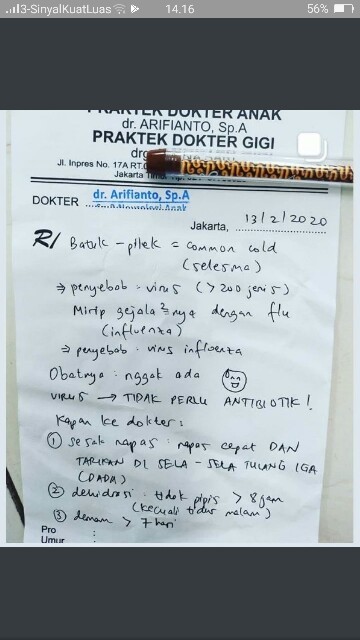 3-SinyalKuatLuas 14.16 56%
PRAKTEK DOKTER ANAK
dr. ARIFIANTO, Sp.A
PRAKTEK DOKTER GIGI
drg
Jl. Inpres No. 17A RT.
Jakarta
DOKTER dr. Arifianto, Sp.A
Jakarta, 13/2/2020
R/ Batuk - pilek = common cold
(selesma)
⇒ penyebab : virus (> 200 jenis)
Mirip gejala²nya dengan flu
(influenza)
⇒ penyebab : virus influenza
Obatnya : nggak ada
VIRUS → TIDAK PERLU ANTIBIOTIK!
Kapan ke dokter :
① sesak napas : napas cepat DAN
TARIKAN DI SELA - SELA TULANG IGA
(DADA)
② dehidrasi : tidak pipis > 8 jam
(kecuali tidur malam)
③ demam > 7 hari
Pro :
Umur :